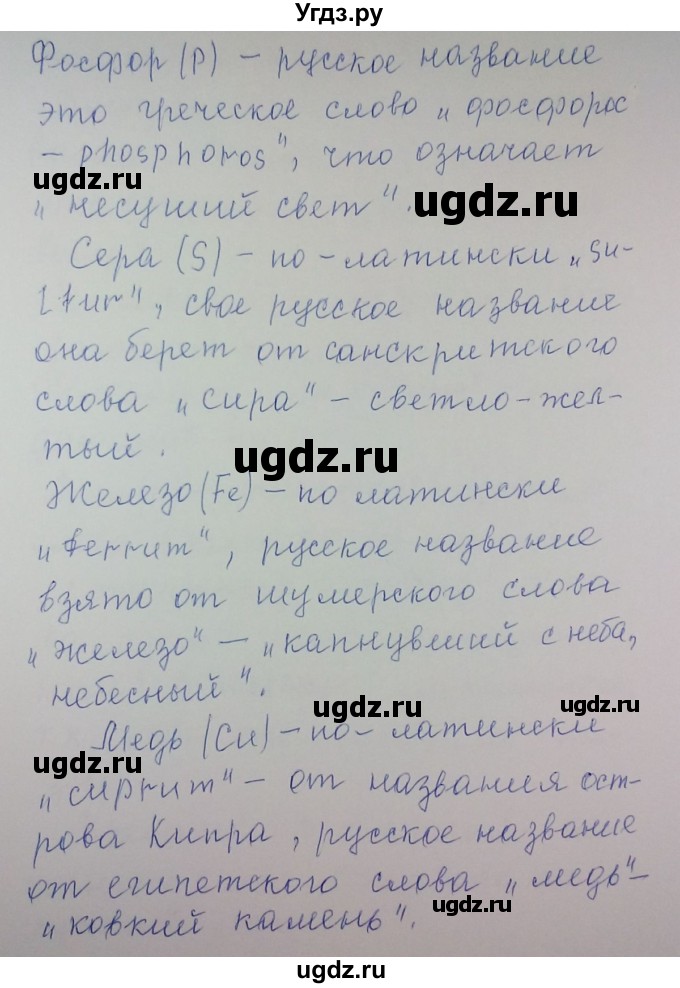 Угдз.ру
Фосфор (P) – русское название
это греческое слово „фосфорос
– phosphoros“, что означает
ugdz.ru
„несущий свет“.
ugdz.ru
Сера (S) – по-латински „su-
lfur“, свое русское название
она берет от санскритского
слова „сира“ – светло-жел-
тый.
ugdz.ru
Железо (Fe) – по латински
„ferrum“, русское название
взято от шумерского слова
„железо“ – „капнувший с неба,
небесный“.
ugdz.ru
Медь (Cu) – по-латински
ugdz.ru
„cuprum“ – от названия ост-
рова Кипра, русское название
от египетского слова „медь“ –
ugdz.ru
„ковкий камень“.
ugdz.ru